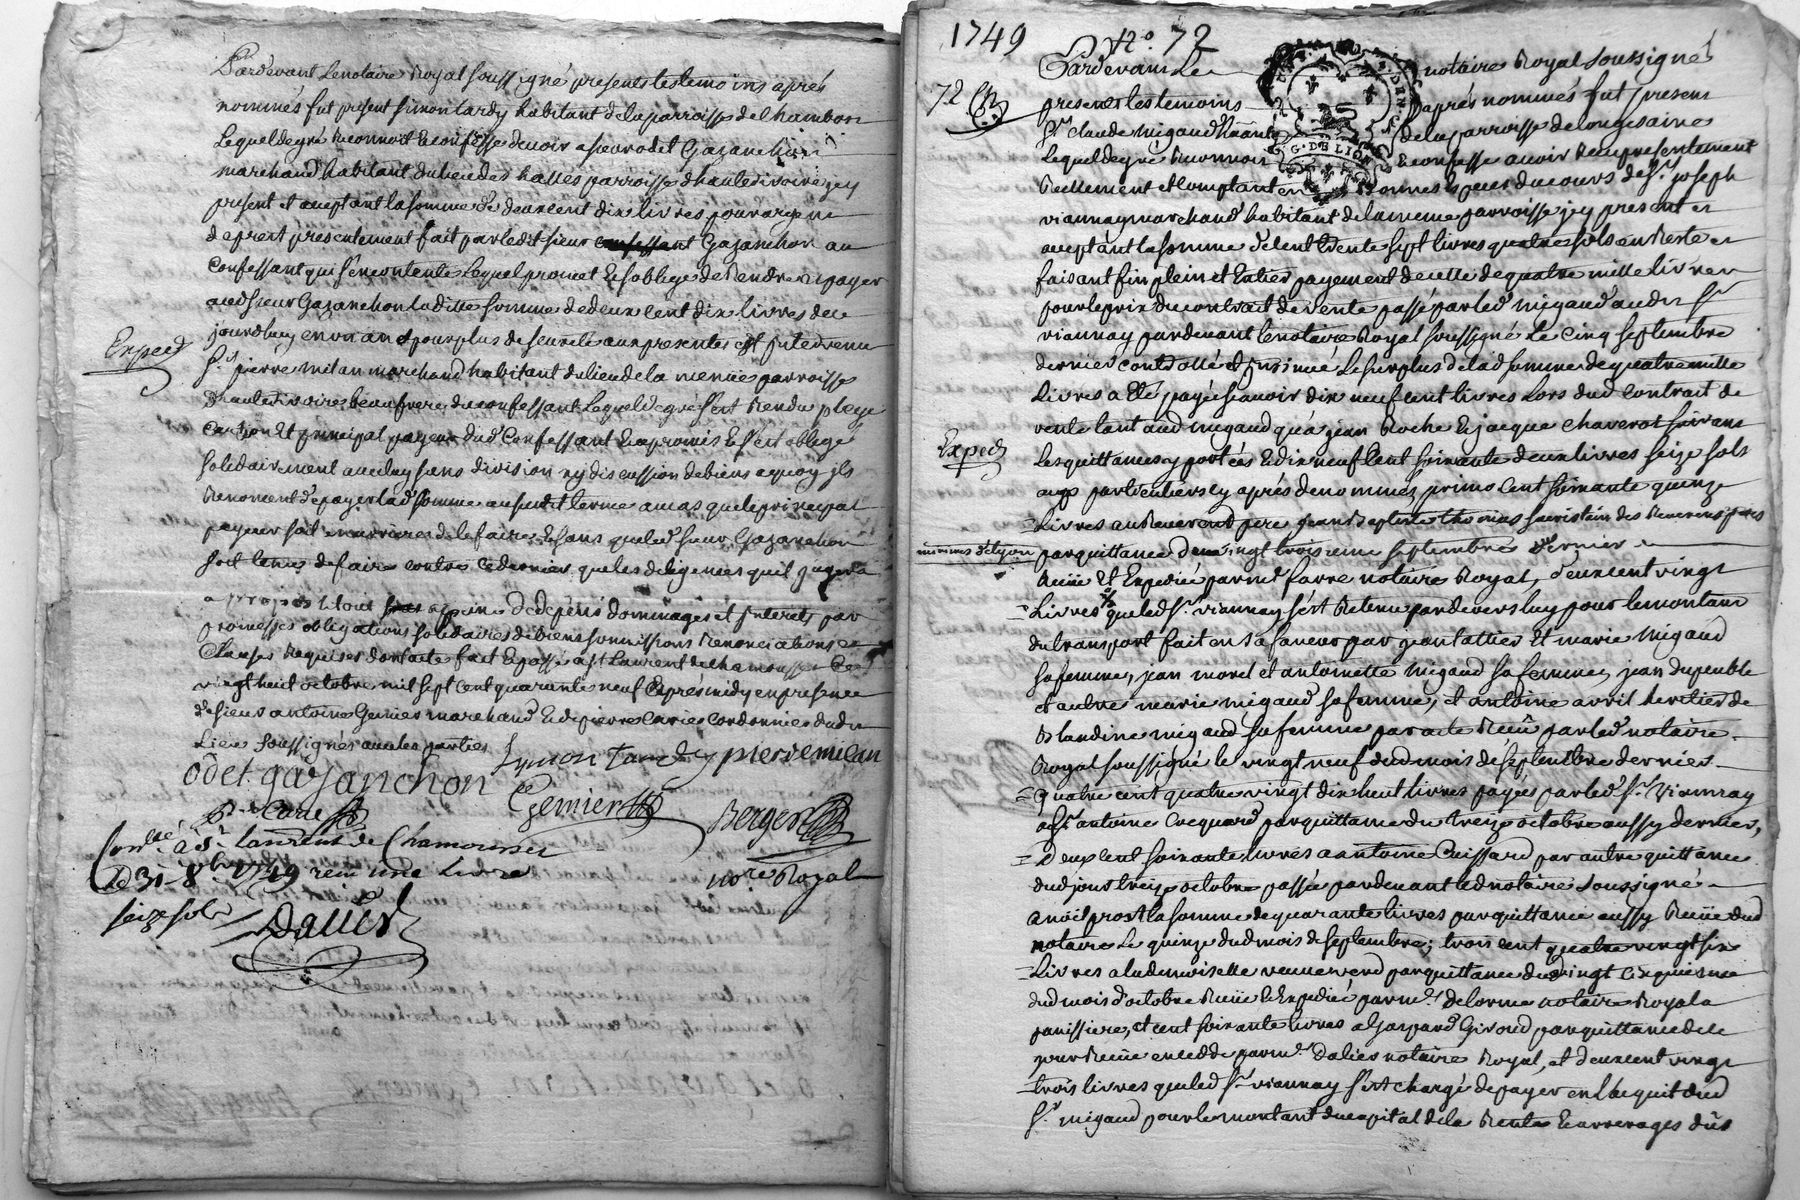 Pardevant Lenotaire Royal soussigné presents lestemoins aprés
nommés fut present simon tardy habitant delaparroisse delhambost
Lequeldegré Reconnoit Et confesse devoir asieur odet Gazanchon
marchand habitant dulieu des halles parroisse dhauterivoire jcy
present et aceptant la somme de deux cent dix livres pour argent
de prest presentement fait parledit sieur Gazanchon au
Confessant qui s'en contente Lequel promet Et s'oblige de Rendre et payer
audsieur Gazanchon laditte somme de deux cent dix livres dece
jourdhuy en un an et pour plus de seureté aux presentes est jntervenu
Sr. pierre milan marchand habitant dulieu dela menüe parroisse
Expedé
dhauterivoire beaufrere du confessant Lequel degré s'est Rendu pleige
Caution Et principal payeur dud. Confessant Et a promis Et s'est obligé
solidairement avec luy sans division ny discussion de biens a quoy jls
Renoncent de payer lad. somme au susdit terme au cas que le principal
payeur soit en arriere de le faire Et sans que led. sieur Gazanchon
soit tenu de faire contre ce dernier que les diligences quil jugera
a propos Et tout a peine de depens dommages et jnterets par
promesses obligations solidaires de biens soumissions Renonciations et
Clauses Requises dont acte fait Et passé a st. Laurent de chamousset Le
vingt huit octobre mil sept cent quarante neuf Et aprés midy en presence
de sieur antoine Gemier marchand Et de pierre Carie Cordonnier dudit
Lieu soussignés avec les parties
Symon Tardy pierre milan
odet gazanchon
Gemier
P. Carie
Berger
nore. Royal
Conllé. a St. Laurent de Chamousset
Le 31. 8bre 1749 reçu une Livre
seize sols
Dalier
1749 No. 72
72
Pardevant Le notaire Royal soussigné
presens les temoins aprés nommés fut present
Sr. claude migaud hãant dela parroisse delongesaine
Lequel degré Reconnoit Et confesse avoir Reçu presentement
Reellement et Comptant en bonnes Especes du cours de Sr. joseph
viannay marchand habitant dela meme parroisse jcy present et
aceptant la somme de cent trente sept livres quatre sols en Reste et
faisant fin plein et Entier payement de celle de quatre mille livres
pour le prix du contrat de vente passé par led. migaud audit Sr.
viannay pardevant le notaire Royal soussigné Le cinq septembre
dernier controllé et jnsinué Le surplus de lad. somme de quatre mille
Livres a Eté payé sçavoir dix neuf cent livres Lors dud. Contrat de
vente tant aud. migaud qu'a jean Roche Et jacque chaverot suivant
Les quittances y portées Et dix neuf cent soixante deux livres seize sols
Expedé
aux particuliers cy aprés denommez primo cent soixante quinze
Livres au Reverend pere jean Baptiste thomas sacristain des Reverens peres
minimes de Lyon
par quittance du vingt troisieme septembre dernier
Reçüe Et Expediée par me. favre notaire Royal, deux cent vingt
Livres que led. Sr. viannay s'est Retenu pardevers luy pour le montant
du transport fait en sa faveur par jean tattier Et marie migaud
sa femme, jean moret et antoinette migaud sa femme, jean dupeuble
et autre marie migaud sa femme, et antoine avril heritier de
Blandine migaud sa femme par acte Reçü par led. notaire
Royal soussigné le vingt neuf dud. mois de septembre dernier
quatre cent quatre vingt dix huit livres payés par led. Sr. Viannay
a Sr. antoine Coquard par quittance du treize octobre aussy dernier,
deux cent soixante livres a antoine Cuissard par autre quittance
dud. jour treize octobre passée pardevant led. notaire soussigné
a noël prost la somme de quarante livres par quittance aussy Reçüe dud.
notaire Le quinze dud. mois de septembre; trois cent quatre vingt six
Livres a la demoiselle veuve verd par quittance du vingt cinquieme
dud. mois d'octobre Reçüe Et Expediée par me. delorme notaire Royal a
panissiere, et cent soixante livres a gaspard Giroud par quittance de ce
jour Reçüe en cedde par me. Dalier notaire Royal, et deux cent vingt
trois livres que led. Sr. viannay s'est chargé de payer en L'acquit dud.
Sr. migaud pour le montant du capital de la Rente Et arrerages dûs
G. DE LION